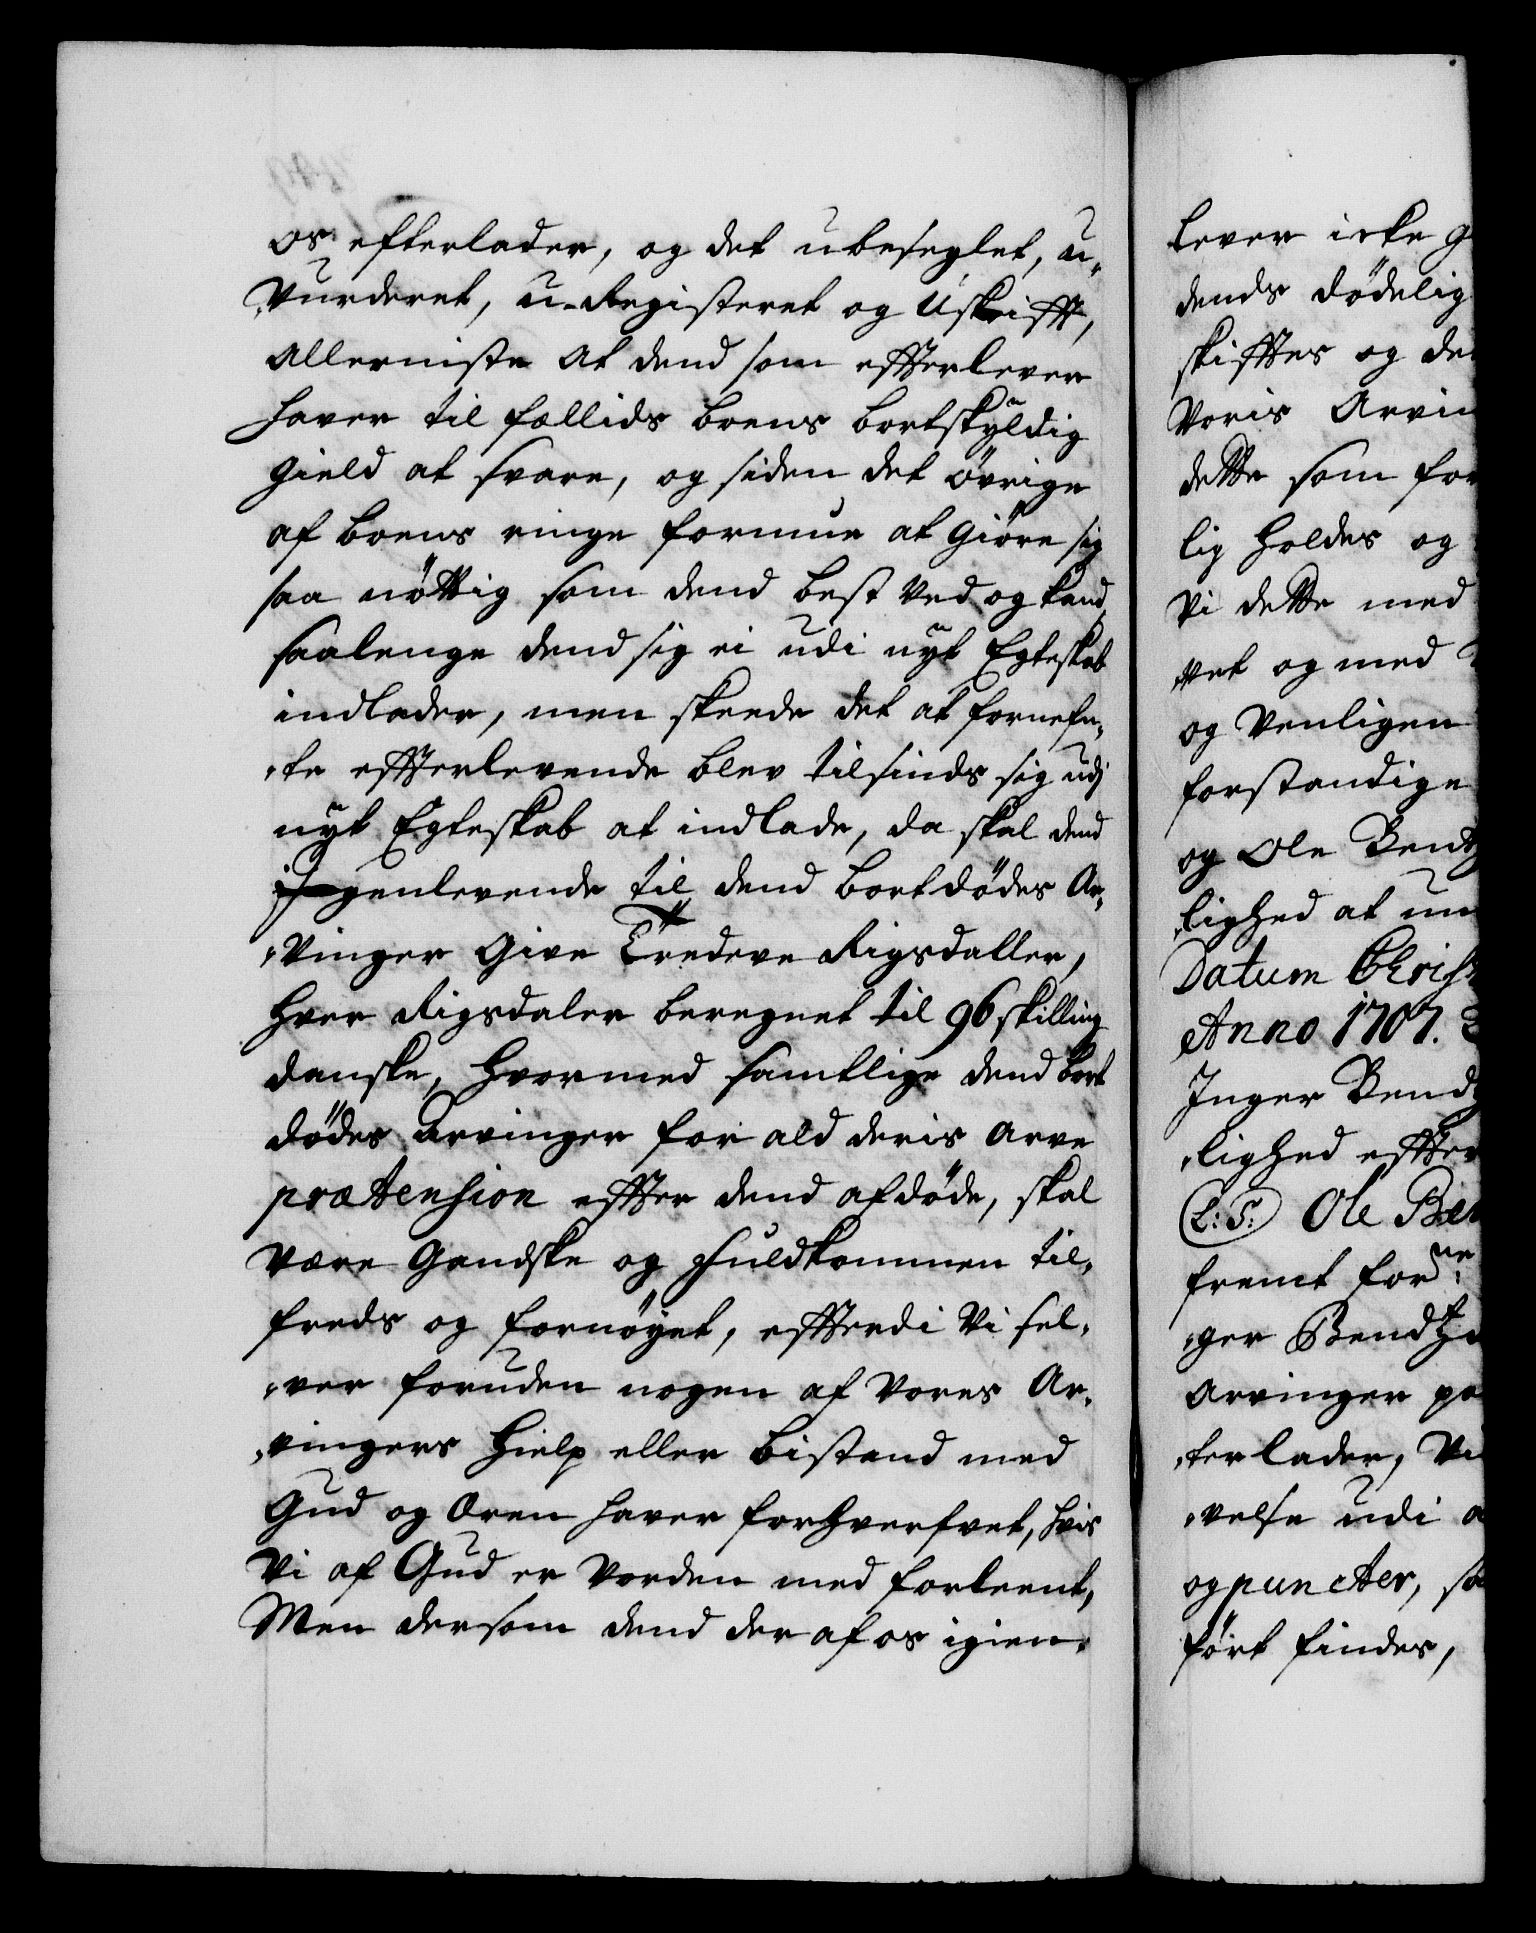 os efterlader, og det ubeseglet, u-
Vurderet, u-Registeret og Uskifft,
allerniste at dend som effterlever
hafver til fællids boens bortskyldig
gield at svare, og siden det øvrige
af boens ringe formue at giøre sig
saa nøttig som dend best ved og kand
saalenge dend sig ei udi nyt Egteskab
indlader, men skeede det at fornefn-
te effterlevende blev tilsinds sig udj
nyt Egteskab at indlade, da skal dend
igenlevende til dend bortdødes Ar-
vinger give Tredeve Rigsdaller,
hver Rigsdaler beregnet til 96 skilling
danske, hvormed samtlige dend bort
dødes arvinger for ald deris arve
prætension effter dend afdøde, skal
være gandske og fuldkommen til-
freds og fornøyet, effterdi Vi sel-
ver foruden nogen af Vores Ar-
vingers hielp eller bistand med
Gud og Æren haver forhverfvet, hvis
Vi af Gud er vorden med forleent,
Men dersom dend der af os igien-
lever icke g
dends dødelig
skifftes og de
Voris Arvin
dette som for
lig holdes og
Vi dette med
vet og med
og Venligen
forstandige
og Ole Bendt
lighed at un
Datum Christ
Anno 1707.
Inger Bend
lighed effter
(L:S:) Ole Ben
fremt forne:
ger Bendtz
arvinger pa
terlader, Vi
velse udi a
og puncter, sa
ført findes,